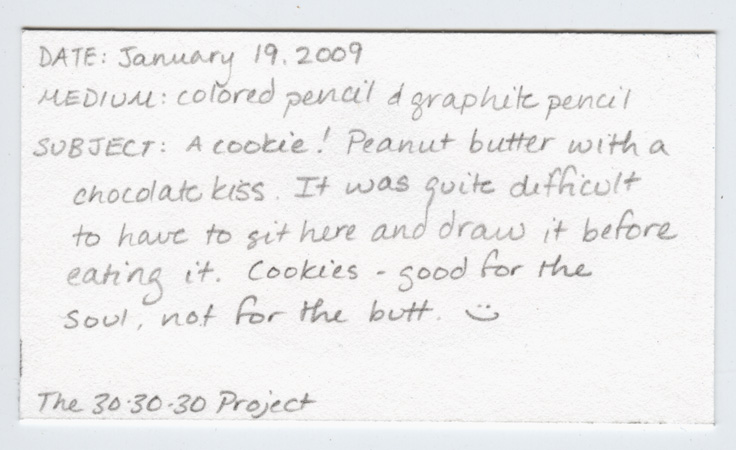 DATE: January 19, 2009
MEDIUM: colored pencil & graphite pencil
SUBJECT: A cookie! Peanut butter with a
chocolate kiss. It was quite difficult
to have to sit here and draw it before
eating it. Cookies - good for the
soul, not for the butt. :)
The 30·30·30 Project